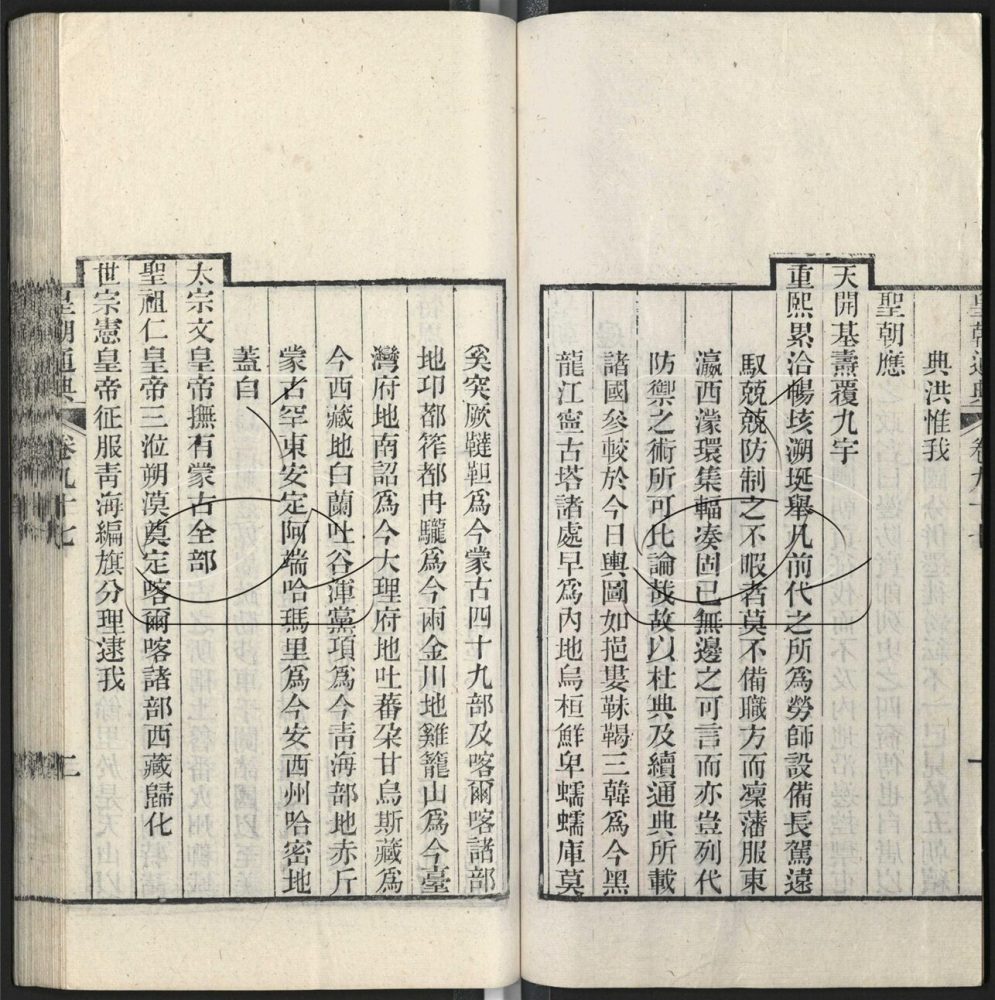 皇朝通典 卷九十七 一
典洪惟我
聖朝應
天開基燾覆九宇
重熙累洽暢垓溯埏舉凡前代之所爲勞師設備長駕遠
馭兢兢防制之不暇者莫不備職方而凜藩服東
瀛西濛環集輻湊固已無邊之可言而亦豈列代
防禦之術所可比論哉故以杜典及續通典所載
諸國參較於今日輿圖如挹婁靺鞨三韓爲今黑
龍江寧古塔諸處早爲內地烏桓鮮卑蠕蠕庫莫
奚突厥韃靼爲今蒙古四十九部及喀爾喀諸部
地卭都筰都冉駹爲今兩金川地雞籠山爲今臺
灣府地南詔爲今大理府地吐蕃朶甘烏斯藏爲
今西藏地白蘭吐谷渾黨項爲今靑海部地赤斤
蒙古罕東安定阿端哈瑪里爲今安西州哈密地
蓋自
太宗文皇帝撫有蒙古全部
聖祖仁皇帝三涖朔漠奠定喀爾喀諸部西藏歸化
世宗憲皇帝征服靑海編旗分理逮我
皇朝通典 卷九十七 二